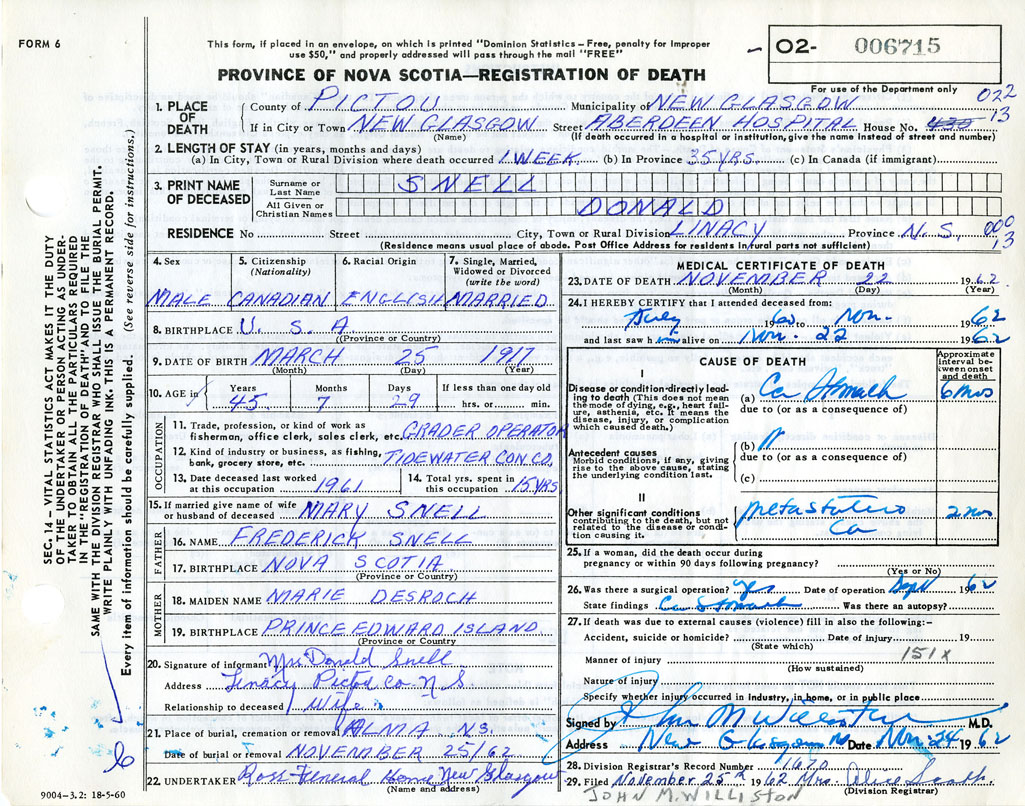 FORM 6
This form, if placed in an envelope, on which is printed "Dominion Statistics – Free, penalty for Improper use $50," and properly addressed will pass through the mail "FREE"
02- 006715
PROVINCE OF NOVA SCOTIA—REGISTRATION OF DEATH
For use of the Department only
022
13
1. PLACE OF DEATH
County of PICTOU Municipality of NEW GLASGOW
If in City or Town NEW GLASGOW Street ABERDEEN HOSPITAL House No. 430
(Name) (If death occurred in a hospital or institution, give the name instead of street and number)
2. LENGTH OF STAY (in years, months and days)
(a) In City, Town or Rural Division where death occurred 1 WEEK (b) In Province 35 YRS. (c) In Canada (if immigrant)
3. PRINT NAME OF DECEASED
Surname or Last Name SNELL
All Given or Christian Names DONALD
RESIDENCE No Street City, Town or Rural Division LINACY Province N.S. 000
13
(Residence means usual place of abode. Post Office Address for residents in rural parts not sufficient)
4. Sex MALE
5. Citizenship (Nationality) CANADIAN
6. Racial Origin ENGLISH
7. Single, Married, Widowed or Divorced (write the word) MARRIED
8. BIRTHPLACE U.S.A
(Province or Country)
9. DATE OF BIRTH MARCH 25 1917
(Month) (Day) (Year)
10. AGE in Years 45 Months 7 Days 29 If less than one day old hrs. or min.
OCCUPATION
11. Trade, profession, or kind of work as fisherman, office clerk, sales clerk, etc. GRADER OPERATOR
12. Kind of industry or business, as fishing, bank, grocery store, etc. TIDEWATER CON CO,
13. Date deceased last worked at this occupation 1961
14. Total yrs. spent in this occupation 15 YRS
15. If married give name of wife or husband of deceased MARY SNELL
FATHER
16. NAME FREDERICK SNELL
17. BIRTHPLACE NOVA SCOTIA
(Province or Country)
MOTHER
18. MAIDEN NAME MARIE DESROCH
19. BIRTHPLACE PRINCE EDWARD ISLAND
(Province or Country)
20. Signature of informant Mrs Donald Snell
Address Linacy Pictou Co. N S.
Relationship to deceased Wife
21. Place of burial, cremation or removal ALMA N.S.
Date of burial or removal NOVEMBER 25/62
22. UNDERTAKER Ross Funeral Home New Glasgow
(Name and address)
9004-3.2: 18-5-60
SEC. 14 – VITAL STATISTICS ACT MAKES IT THE DUTY
OF THE UNDERTAKER OR PERSON ACTING AS UNDER-
TAKER TO OBTAIN ALL THE PARTICULARS REQUIRED
IN THE "REGISTRATION OF DEATH" AND TO FILE THE
SAME WITH THE DIVISION REGISTRAR WHO SHALL ISSUE THE BURIAL PERMIT.
WRITE PLAINLY WITH UNFADING INK–THIS IS A PERMANENT RECORD.
Every item of information should be carefully supplied. (See reverse side for instructions.)
MEDICAL CERTIFICATE OF DEATH
23. DATE OF DEATH NOVEMBER 22 1962
(Month) (Day) (Year)
24. I HEREBY CERTIFY that I attended deceased from:
July 1960 to Nov. 1962
and last saw him alive on Nov. 22 1962
CAUSE OF DEATH
Approximate interval between onset and death
I
Disease or condition directly leading to death (This does not mean the mode of dying, e.g., heart failure, asthenia, etc. It means the disease, injury, or complication which caused death.)
(a) Ca Stomach 6 mos
due to (or as a consequence of)
Antecedent causes
Morbid conditions, if any, giving rise to the above cause, stating the underlying condition last.
(b)
due to (or as a consequence of)
(c)
II
Other significant conditions contributing to the death, but not related to the disease or condition causing it.
Ca 2 mos
25. If a woman, did the death occur during pregnancy or within 90 days following pregnancy?
(Yes or No)
26. Was there a surgical operation? yes Date of operation Sept 1962
State findings Ca Stomach Was there an autopsy?
27. If death was due to external causes (violence) fill in also the following:–
Accident, suicide or homicide? Date of injury 19
(State which)
151X
Manner of injury
(How sustained)
Nature of injury
Specify whether injury occurred in industry, in home, or in public place
Signed by John M Williston M.D.
Address New Glasgow NS Date Nov. 24 1962
28. Division Registrar's Record Number 1670
29. Filed November 25th 1962 Mrs. Alice
(Division Registrar)
JOHN M. WILLISTON